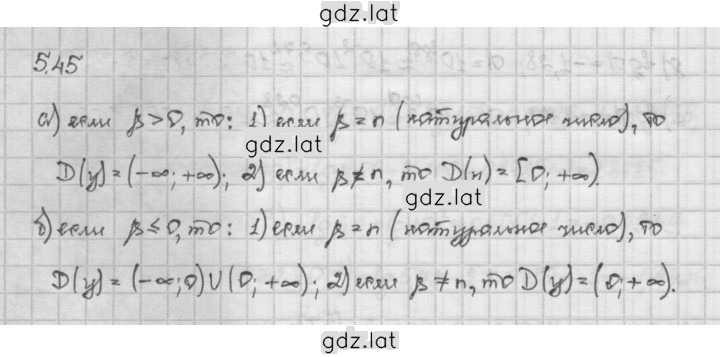 gdz.lat
5.45
а) если β>0, то: 1) если β=n (натуральное число), то
gdz.lat
D(y)=(-∞;+∞); 2) если β≠n, то D(n)=[0;+∞).
gdz.lat
б) если β≤0, то: 1) если β=n (натуральное число), то
D(y)=(-∞;0)∪(0;+∞); 2) если β≠n, то D(y)=(0;+∞).
gdz.lat